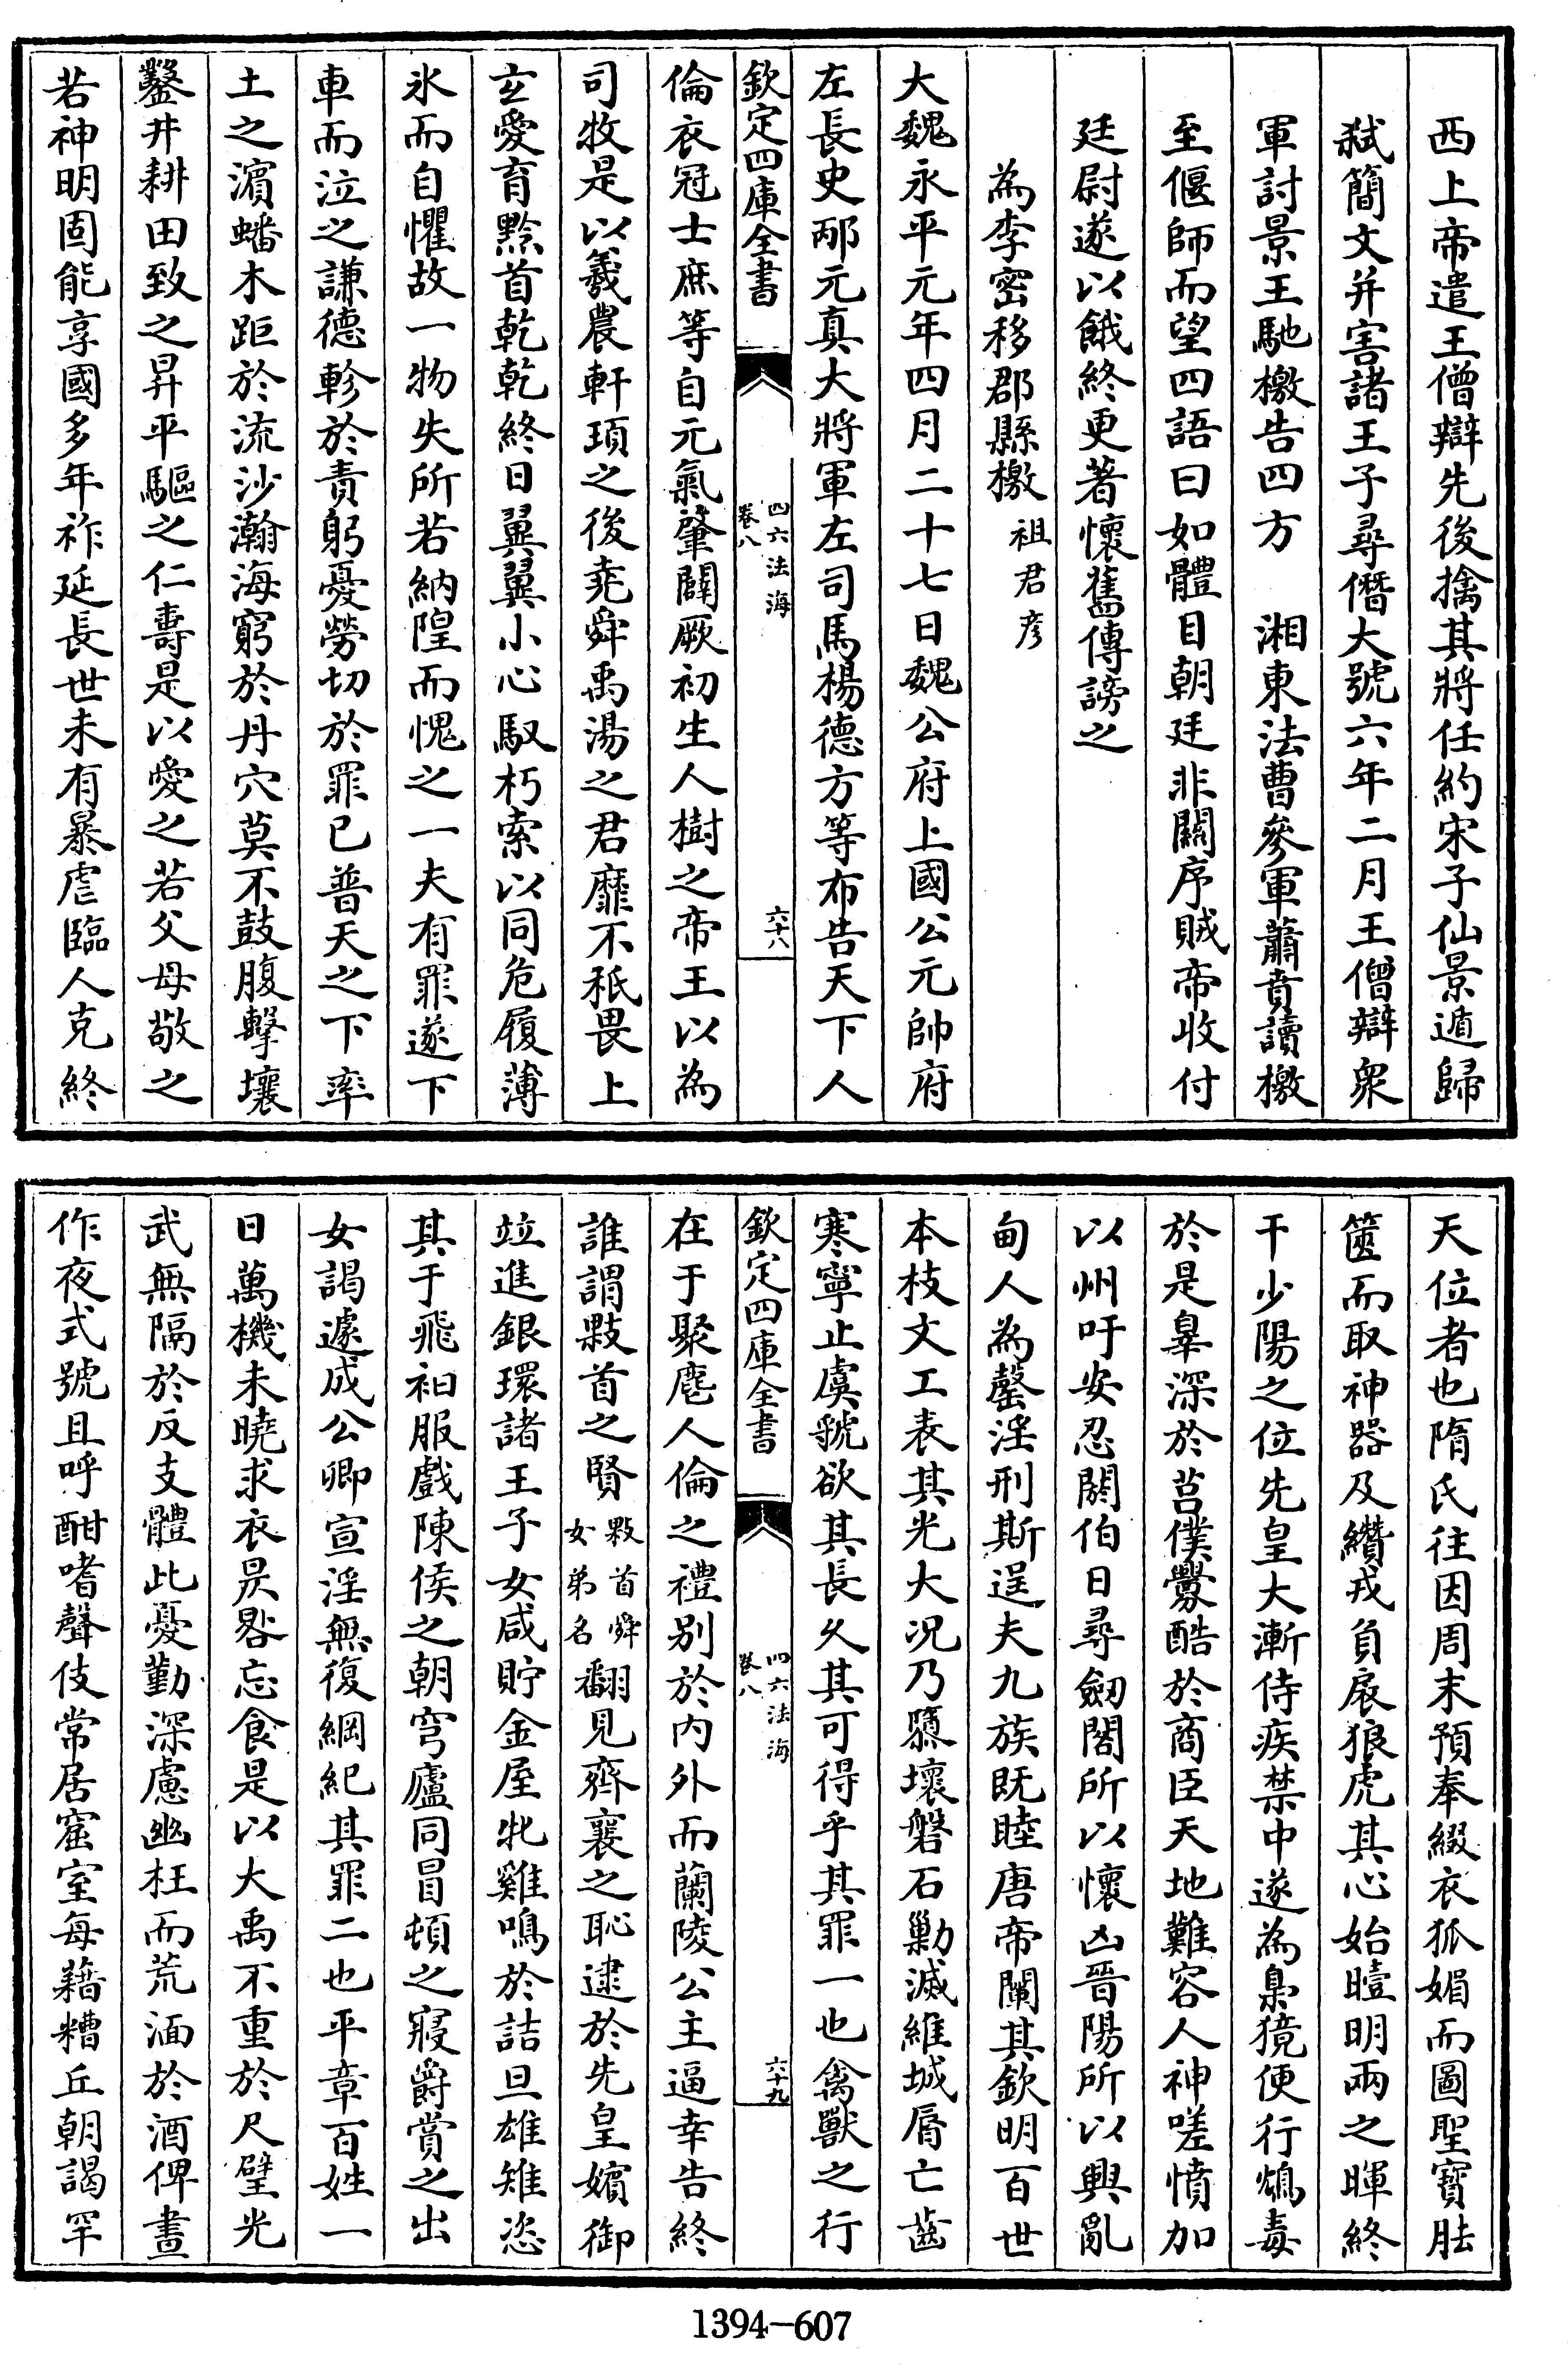 西上帝遣王僧辯先後擒其將任約宋子仙景遁歸
弑簡文并害諸王子尋僭大號六年二月王僧辯眾
軍討景王馳檄告四方　湘東法曹參軍蕭賁讀檄
至偃師而望四語曰如體目朝廷非關序賊帝收付
廷尉遂以餓終更著懷舊傳謗之
為李密移郡縣檄　祖君彥
大魏永平元年四月二十七日魏公府上國公元帥府
左長史邴元真大將軍左司馬楊德方等布告天下人
欽定四庫全書　四六法海　卷八　六十八
倫衣冠士庶等自元氣肇闢厥初生人樹之帝王以為
司牧是以羲農軒頊之後堯舜禹湯之君靡不秪畏上
玄愛育黔首乾乾終日翼翼小心馭朽索以同危履薄
氷而自懼故一物失所若納隍而愧之一夫有罪遂下
車而泣之謙德軫於責躬憂勞切於罪已普天之下率
土之濵蟠木距於流沙瀚海窮於丹穴莫不鼓腹擊壤
鑿井耕田致之昇平驅之仁壽是以愛之若父母敬之
若神明固能享國多年祚延長世未有暴虐臨人克終
天位者也隋氏往因周末預奉綴衣狐媚而圖聖寶胠
篋而取神器及纘戎負扆狼虎其心始曀明兩之暉終
干少陽之位先皇大漸侍疾禁中遂為梟獍便行鴆毒
於是辠深於莒僕釁酷於商臣天地難容人神嗟憤加
以州吁安忍閼伯日尋劔閣所以懷凶晉陽所以興亂
甸人為罄淫刑斯逞夫九族既睦唐帝闡其欽明百世
本枝文工表其光大况乃隳壞磐石勦滅維城脣亡齒
寒寧止虞虢欲其長久其可得乎其罪一也禽獸之行
欽定四庫全書　四六法海　卷八　六十九
在于聚麀人倫之禮别於内外而蘭陵公主逼幸告終
誰謂敤首之賢敤首舜女弟名翻見齊襄之恥逮於先皇嬪御
竝進銀環諸王子女咸貯金屋牝雞鳴於詰旦雄雉恣
其于飛衵服戲陳侯之朝穹廬同冒頓之寢爵賞之出
女謁遽成公卿宣淫無復綱紀其罪二也平章百姓一
日萬機未曉求衣昃晷忘食是以大禹不重於尺璧光
武無隔於反支體此憂勤深慮幽枉而荒湎於酒俾晝
作夜式號且呼酣嗜聲伎常居窟室每藉糟丘朝謁罕
1394-607